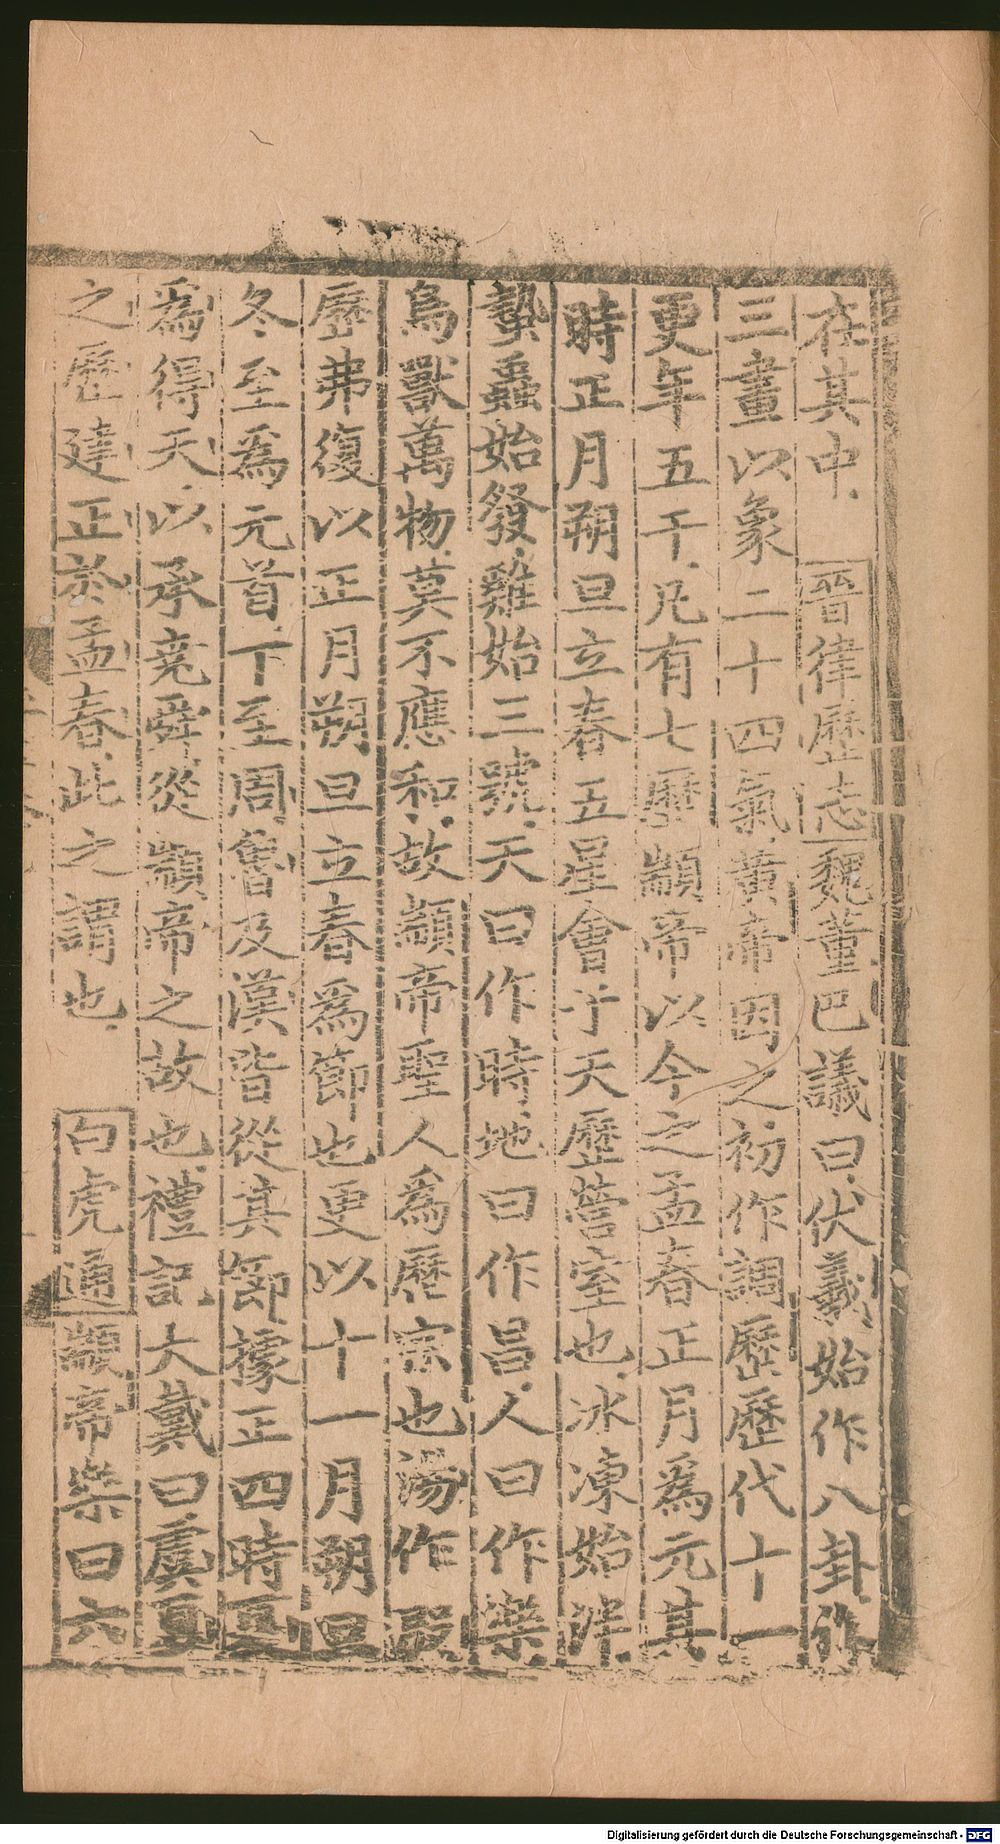 在其中 晉律歷志魏董巴議曰伏羲始作八卦作
三畫以象二十四氣黃帝因之初作調歷歷代十一
更年五千凡有七歷顓帝以今之孟春正月爲元其
時正月朔旦立春五星會于天歷營室也冰凍始泮
蟄蟲始發雞始三號天曰作時地曰作昌人曰作樂
鳥獸萬物莫不應和故顓帝聖人爲歷宗也湯作殷
歷弗復以正月朔旦立春爲節也更以十一月朔旦
冬至爲元首下至周魯及漢皆從其節據正四時夏
爲得天以承堯舜從顓帝之故也禮記大戴曰虞夏
之歷建正於孟春此之謂也 白虎通顓帝樂曰六
Digitalisierung gefördert durch die Deutsche Forschungsgemeinschaft - DFG